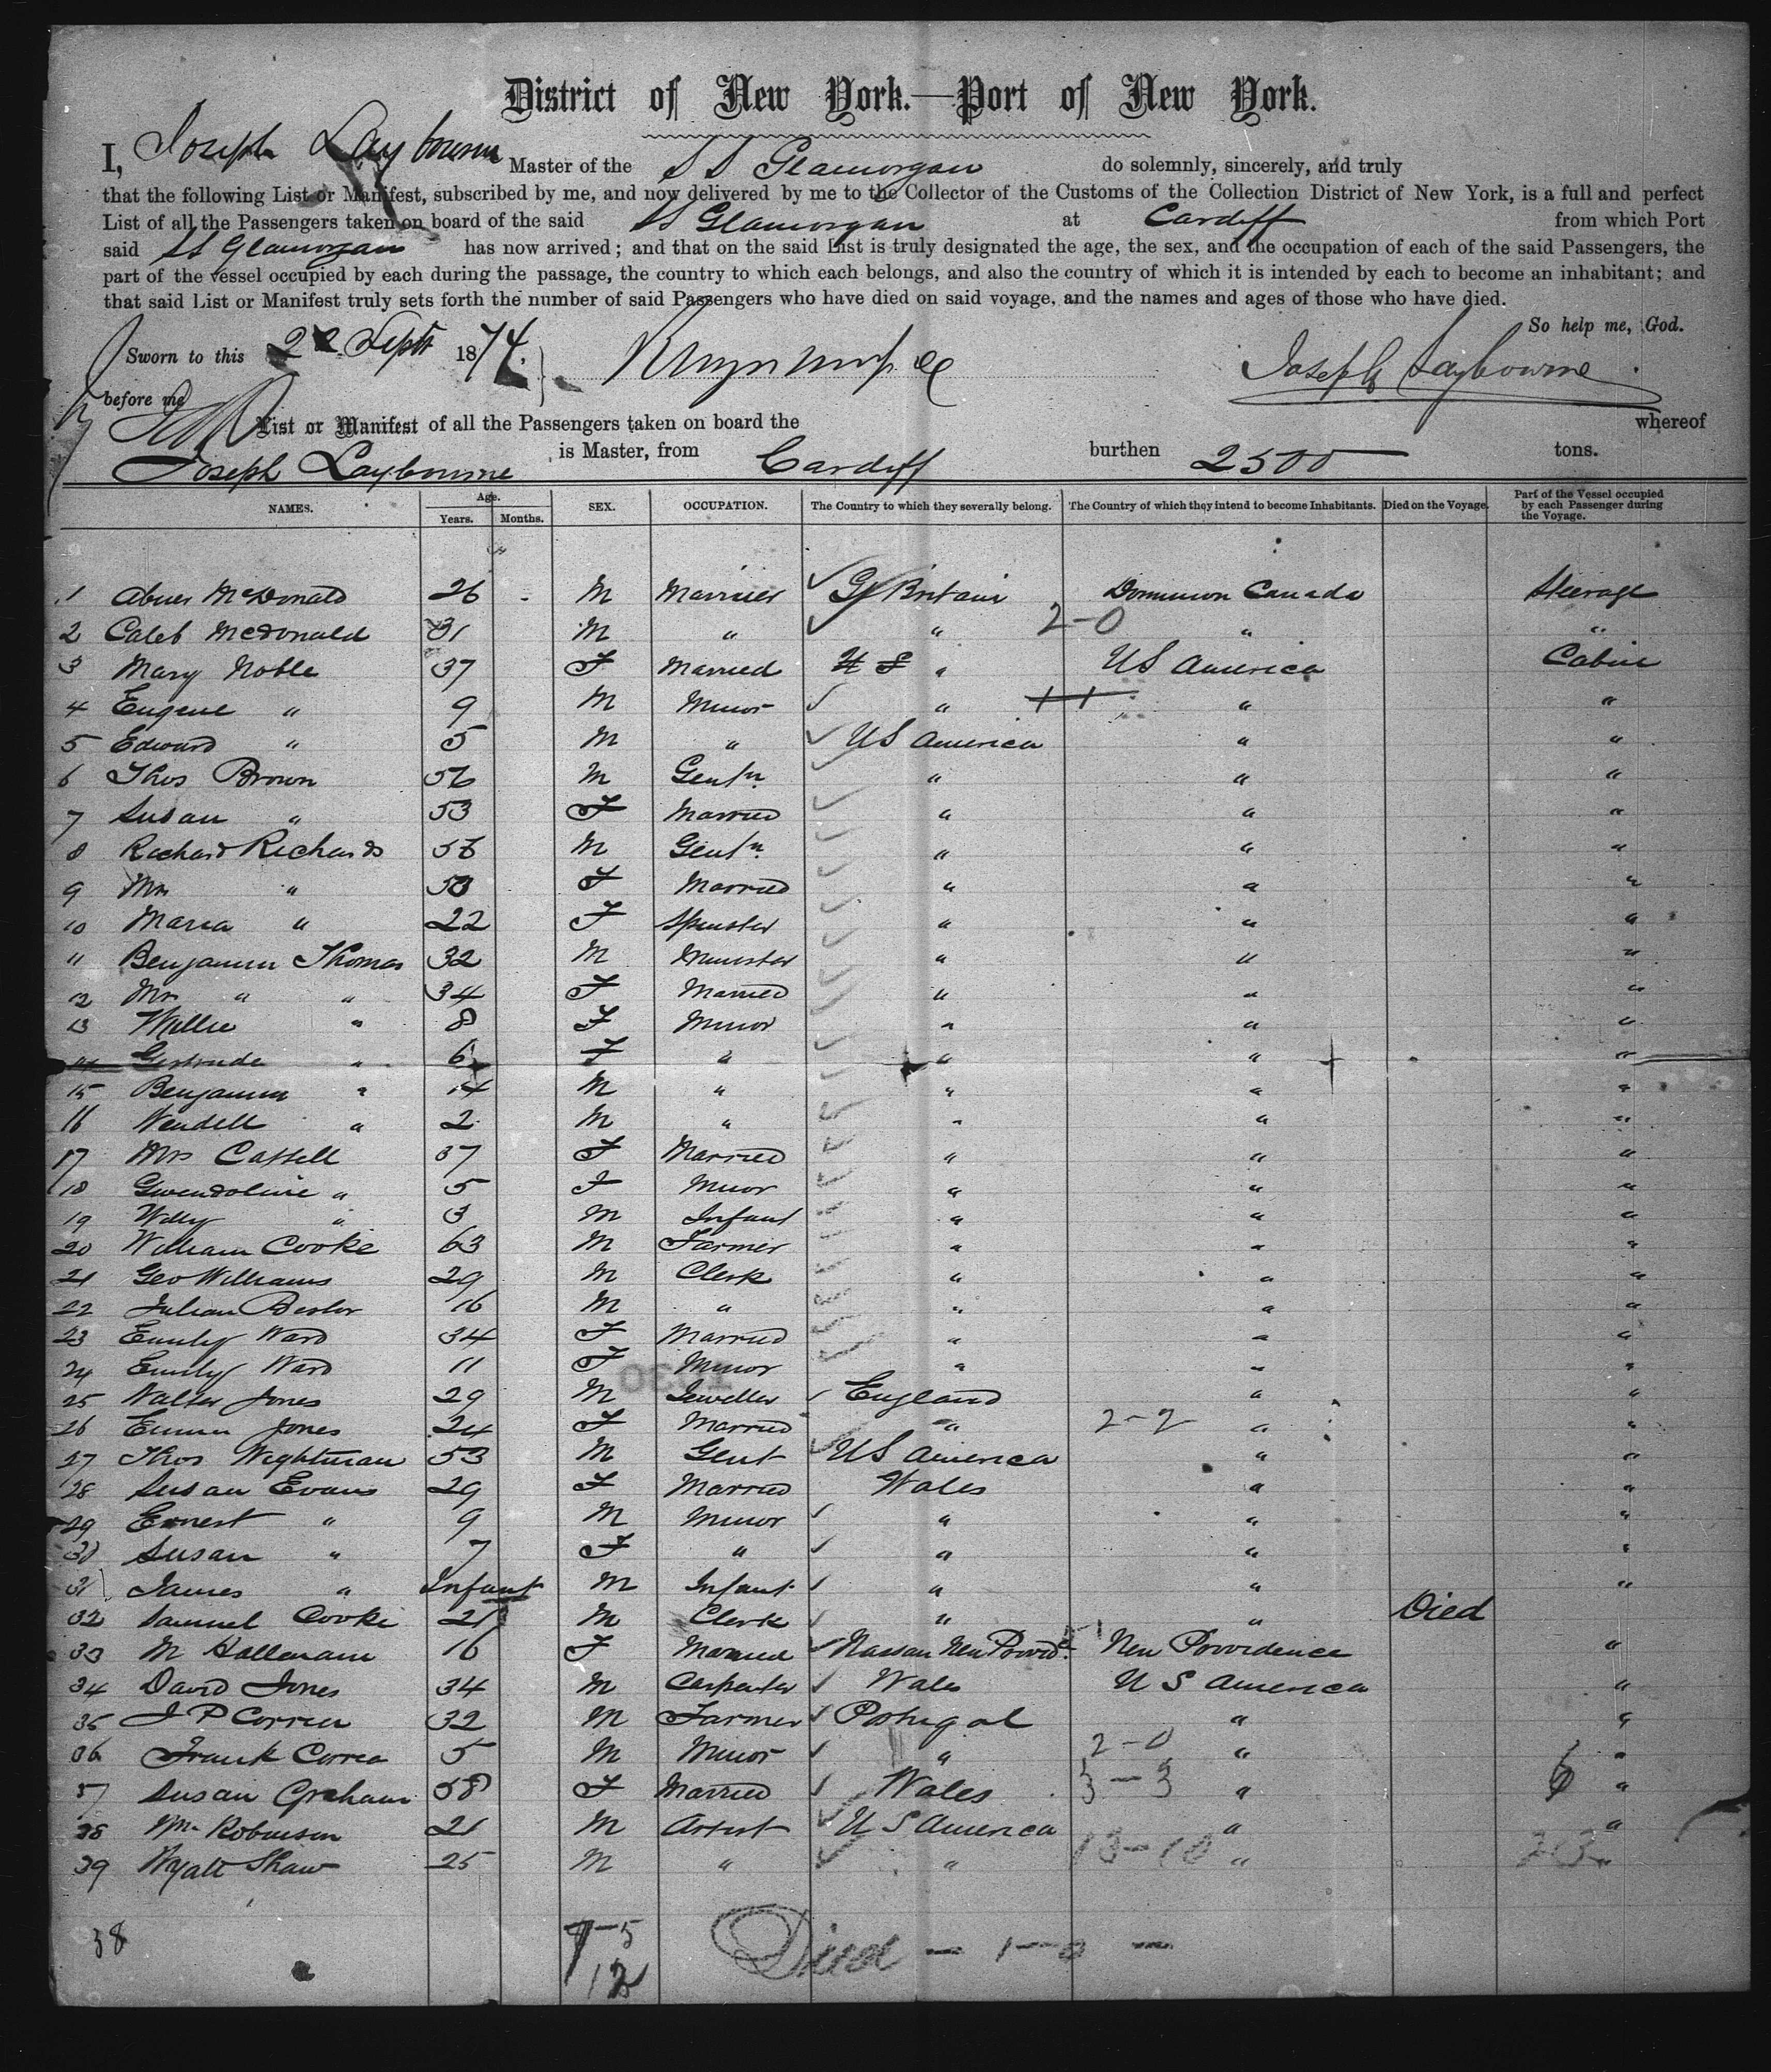 District of New York.—Port of New York.
I, Joseph Laybourne Master of the S S Glamorgan do solemnly, sincerely, and truly
that the following List or Manifest, subscribed by me, and now delivered by me to the Collector of the Customs of the Collection District of New York, is a full and perfect
List of all the Passengers taken on board of the said SS Glamorgan at Cardiff from which Port
said SS Glamorgan has now arrived; and that on the said List is truly designated the age, the sex, and the occupation of each of the said Passengers, the
part of the vessel occupied by each during the passage, the country to which each belongs, and also the country of which it is intended by each to become an inhabitant; and
that said List or Manifest truly sets forth the number of said Passengers who have died on said voyage, and the names and ages of those who have died.
So help me, God.
Sworn to this 22 Sept 1874. Joseph Laybourne
before me
List or Manifest of all the Passengers taken on board the whereof
Joseph Laybourne is Master, from Cardiff burthen 2500 tons.
NAMES. Age. Years. Months. SEX. OCCUPATION. The Country to which they severally belong. The Country of which they intend to become Inhabitants. Died on the Voyage. Part of the Vessel occupied by each Passenger during the Voyage.
1 Abner McDonald 26 - M Marrier Gt Britain Dominion Canada Steerage
2 Caleb McDonald 31 M " " 2-0 " "
3 Mary Noble 37 F Married " US America Cabin
4 Eugene " 9 M Minor " 1-1 " "
5 Edward " 5 M " US America " "
6 Thos Brown 56 M Gentn " " "
7 Susan " 53 F Married " " "
8 Richard Richards 56 M Gentn. " " "
9 Mrs " 53 F Married " " "
10 Maria " 22 F Spinster " " "
11 Benjamin Thomas 32 M Minister " " "
12 Mrs " " 34 F Married " " "
13 Willie " 8 F Minor " " "
14 Gertrude " 6 F " " " "
15 Benjamin " 4 M " " " "
16 Wendell " 2 M " " " "
17 Mrs Cassell 37 F Married " " "
18 Gwendoline " 5 F Minor " " "
19 Willy " 3 M Infant " " "
20 William Cooke 63 M Farmer " " "
21 Geo Williams 29 M Clerk " " "
22 Julian 16 M " " " "
23 Emily Ward 34 F Married " " "
24 Emily Ward 11 F Minor " " "
25 Walter Jones 29 M Jeweller England " "
26 Emma Jones 24 F Married " 2-2 " "
27 Thos Wightman 53 M Gent US America " "
28 Susan Evans 29 F Married Wales " "
29 Ernest " 9 M Minor " " "
30 Susan " 7 F " " " "
31 James " Infant M Infant " " "
32 Samuel Cooke 21 M Clerk " " Died
33 M 16 F Married Nassau New Provid. New Providence "
34 David Jones 34 M Carpenter Wales U S America "
35 J P Correa 32 M Farmer Portugal " "
36 Frank Correa 5 M Minor " 2-0 " "
37 Susan Graham 58 F Married Wales 3-3 " 6 "
38 Wm Robinson 21 M Artist U S America " "
39 Wyatt Shaw 25 M " " 13-10 " 23 "
38 7-5 Died - 1-0 -
12